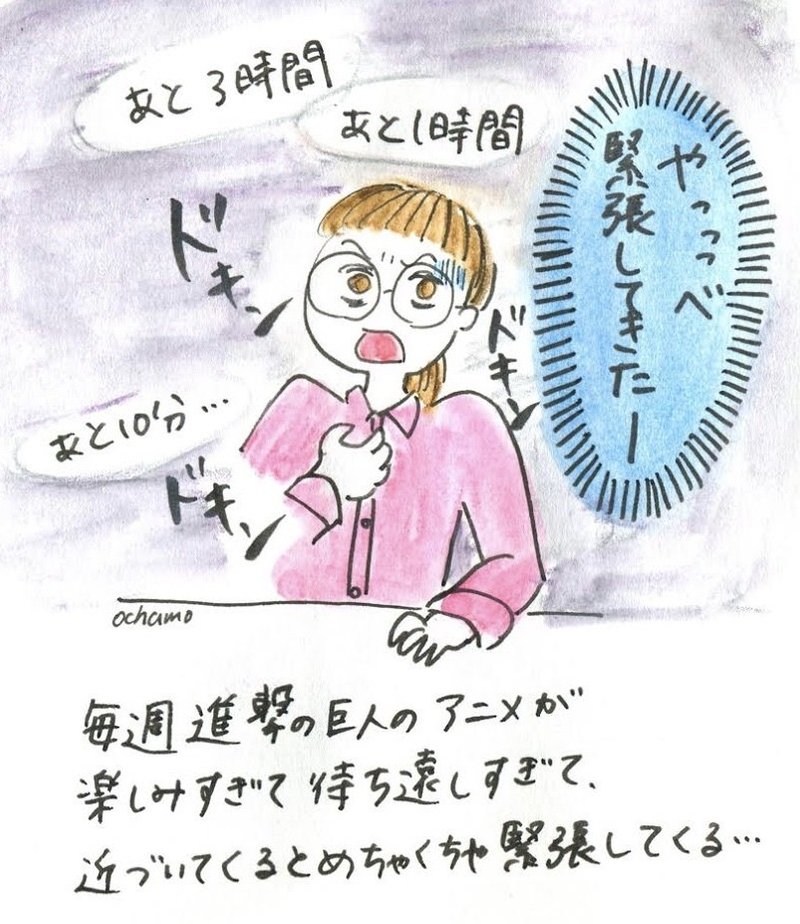 あと3時間
あと1時間
やっっっべ
緊張してきたー
ドキン
ドキン
あと10分…
ドキン
ochamo
毎週進撃の巨人のアニメが
楽しみすぎて待ち遠しすぎて、
近づいてくるとめちゃくちゃ緊張してくる…